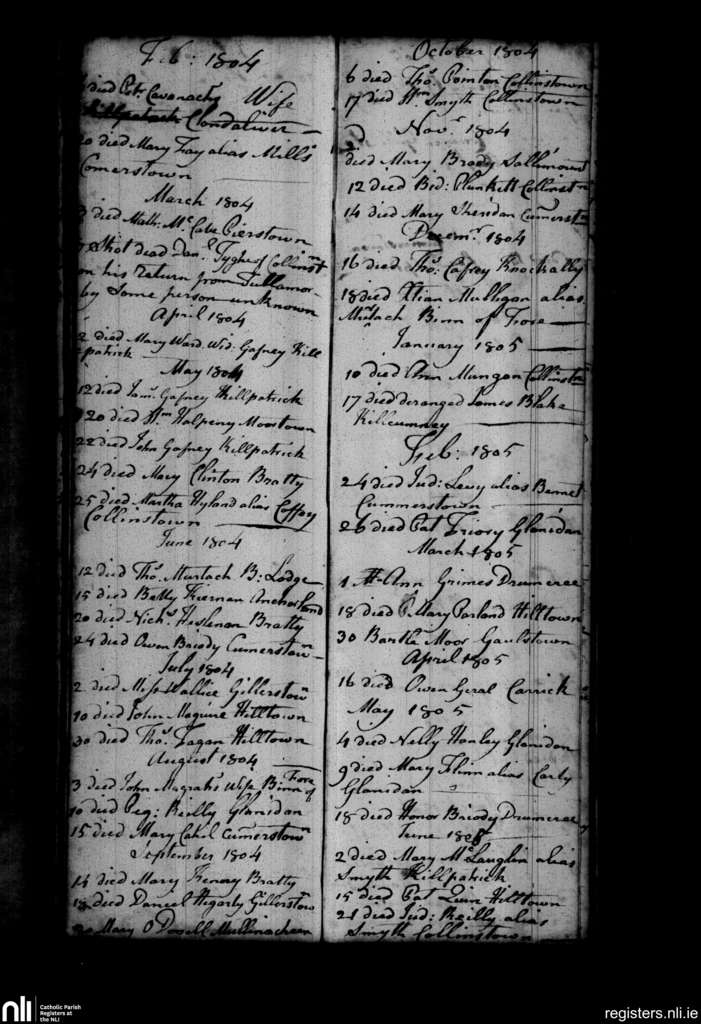 Feb: 1804
died Patk. Cavanachs Wife
Killpatrick Clondaliver
20 died Mary Fay alias Mills
Comerstown
March 1804
died Math: McCabe Pierstown
Shot dead Danl. Tyghe of Collinst
on his return from Tullamor-
by Some person unknown
April 1804
2 died Mary Ward Wid: Gafney Kill
patrick
May 1804
12 died Jams. Gafney Killpatrick
20 died Wm Halpeny Moortown
22 died John Gafney Killpatrick
24 died Mary Clinton Bratty
25 died Martha Hyland alias Coffey
Collinstown
June 1804
12 died Thos. Murtach B: Lodge
15 died Betty Kiernan
20 died Nichs. Heslenan Bratty
24 died Owen Briody Cumerstown
July 1804
2 died Miss Wallice Gillerstown
10 died John Maguire Hilltown
30 died Thos. Fagan Hilltown
August 1804
3 died John Magraths Wife Binn of Fore
10 died Peg: Reilly Glanidan
15 died Mary Cahil Cumerstown
September 1804
14 died Mary Frenery Bratty
18 died Daniel Hegarty Gillerstow
20 Mary O Donell Mullinacheen
October 1804
6 died Thos. Pointon Collinstown
17 died Wm Smyth Collinstown
Novr. 1804
2
died Mary Brody Sallimount
12 died Bid: Plunkett Collinstn
14 died Mary Sheridan Cumerstn
Decemr. 1804
16 died Thos. Cafrey Knockally
18 died Xtian Mulligan alias
Murtach Binn of Fore
January 1805
10 died Ann Mungan Collinstn
17 died deranged James Blake
Killcumney
Feb: 1805
24 died Jud: Levy alias Barnet
Cummerstown
26 died Pat Friory Glanidan
March 1805
1 Ann Grimes Drumcree
18 died Mary Parland Hilltown
30 Bartle Moor Gaulstown
April 1805
16 died Owen Geral Carrick
May 1805
4 died Nelly Hanley Glanidan
9 died Mary Flinn alias Carby
Glanidan
18 died Honor Briody Drumcree
June 1805
2 died Mary McLauglin alias
Smyth Killpatrick
15 died Pat Quin Hilltown
21 died Jud: Reilly alias
Smyth Collinstown
nli
Catholic Parish
Registers at
the NLI
registers.nli.ie